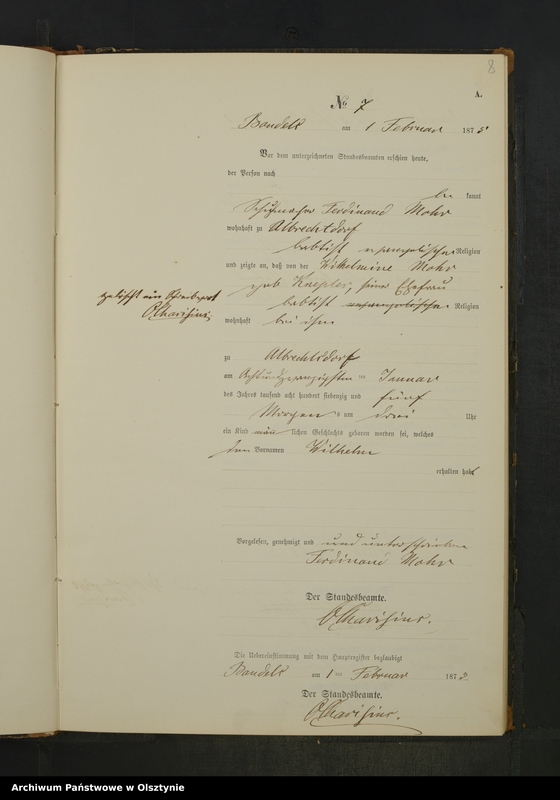 8
A.
No 7
Bandels am 1 Februar 1875
Vor dem unterzeichneten Standesbeamten erschien heute,
der Person nach
be kannt
Schuhmacher Ferdinand Mohr
wohnhaft zu Albrechtsdorf
babtist evangelischer Religion
und zeigte an, daß von der Wilhelmine Mohr
geb seine Ehefrau
babtist evangelischer Religion
wohnhaft bei ihm
zu Albrechtsdorf
am Achtundzwanzigsten ten Januar
des Jahres tausend acht hundert siebenzig und fünf
Morgens um drei Uhr
ein Kind männlichen Geschlechts geboren worden sei, welches
den Vornamen Wilhelm
erhalten habe
gelöscht ein Schreibwort
Vorgelesen, genehmigt und und unterschrieben
Ferdinand Mohr
Der Standesbeamte.
Die Uebereinstimmung mit dem Hauptregister beglaubigt
Bandels am 1 ten Februar 1875
Der Standesbeamte.
Archiwum Państwowe w Olsztynie